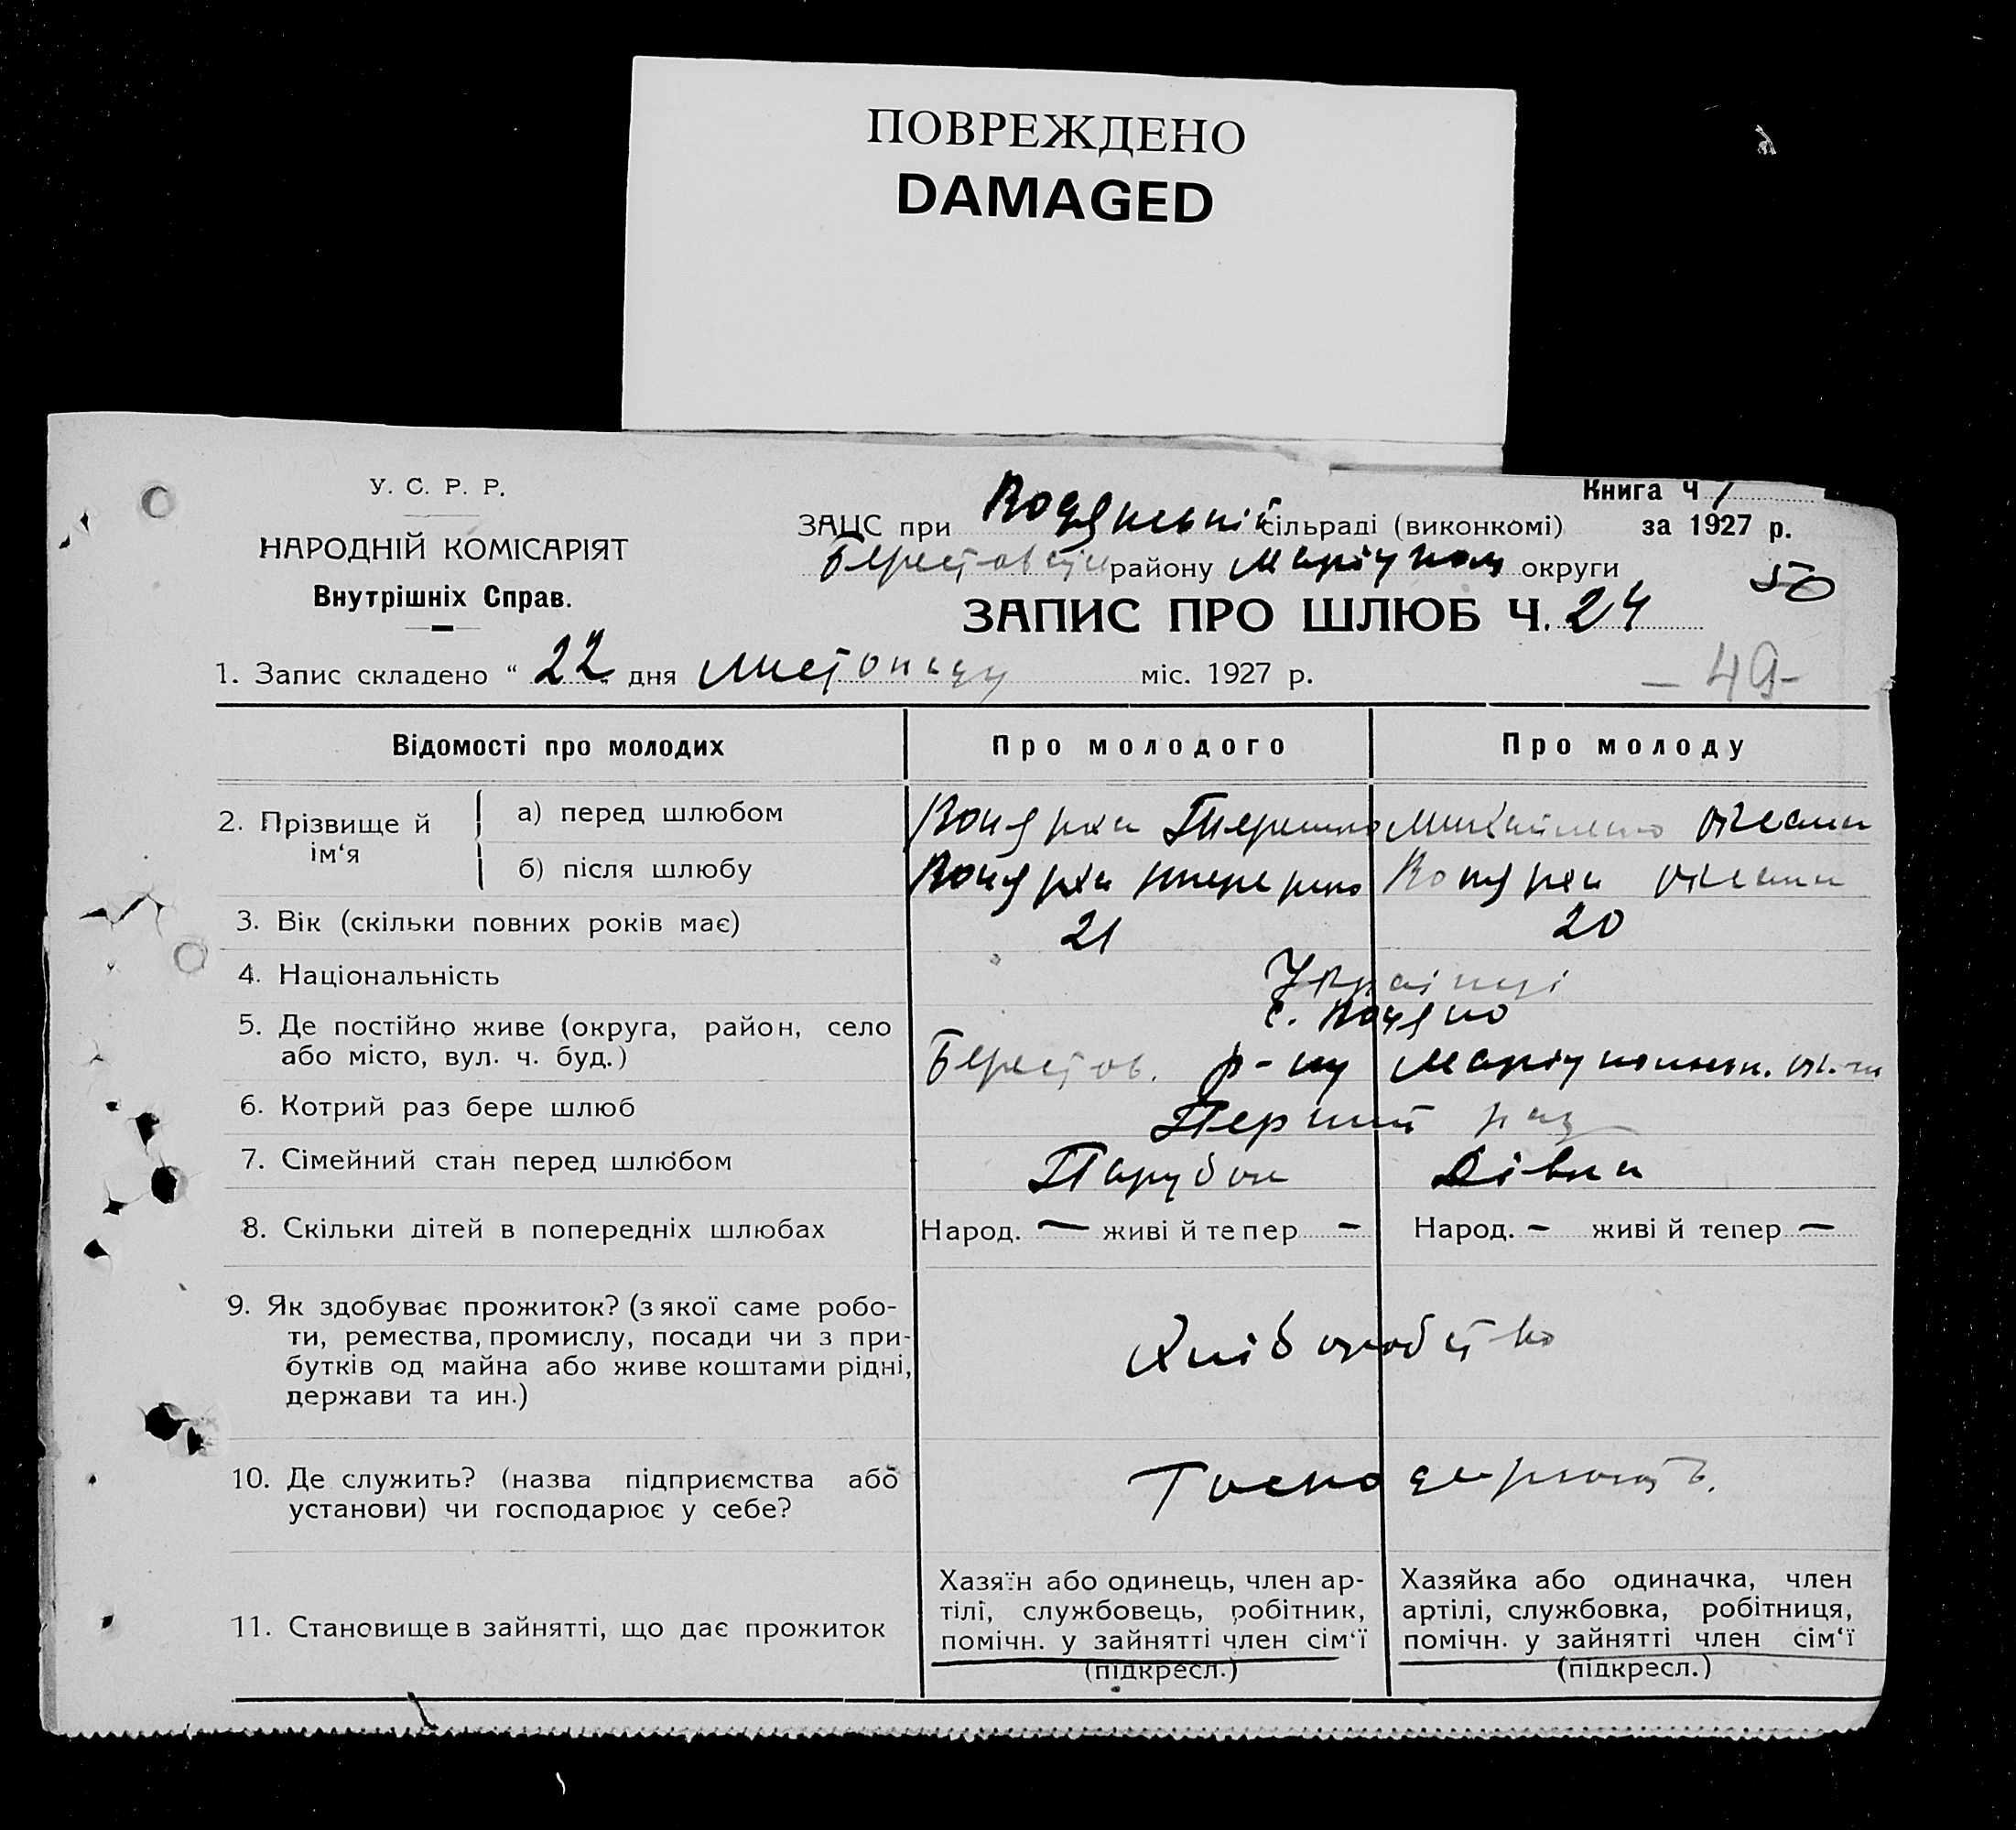 ПОВРЕЖДЕНО
DAMAGED
У. С. Р. Р.
НАРОДНІЙ КОМІСАРІЯТ
Внутрішніх Справ.
Книга Ч 1
ЗАЦС при Водянській сільраді (виконкомі) за 1927 р.
Берестовськ району Маріупол округи
50
ЗАПИС ПРО ШЛЮБ Ч. 24
1. Запис складено “ 22 дня листопаду міс. 1927 р.
– 49 –
Відомості про молодих Про молодого Про молоду
2. Прізвище й ім‘я
а) перед шлюбом Михайленко
б) після шлюбу
3. Вік (скільки повних років має) 21 20
4. Національність Українці
5. Де постійно живе (округа, район, село с. Водяно
або місто, вул. ч. буд.) Берестов. р-ну Маріупольськ. ок-ги
6. Котрий раз бере шлюб Перший раз
7. Сімейний стан перед шлюбом Парубок Дівка
8. Скільки дітей в попередніх шлюбах Народ. — живі й тепер — Народ. — живі й тепер —
9. Як здобуває прожиток? (з якої саме робо-
ти, ремества, промислу, посади чи з при- Хліборобство
бутків од майна або живе коштами рідні,
держави та ин.)
10. Де служить? (назва підприємства або Господарюють.
установи) чи господарює у себе?
11. Становище в зайнятті, що дає прожиток
Хазяїн або одинець, член ар-
тілі, службовець, робітник,
помічн. у зайнятті член сім‘ї
(підкресл.)
Хазяйка або одиначка, член
артілі, службовка, робітниця,
помічн. у зайнятті член сім‘ї
(підкресл.)